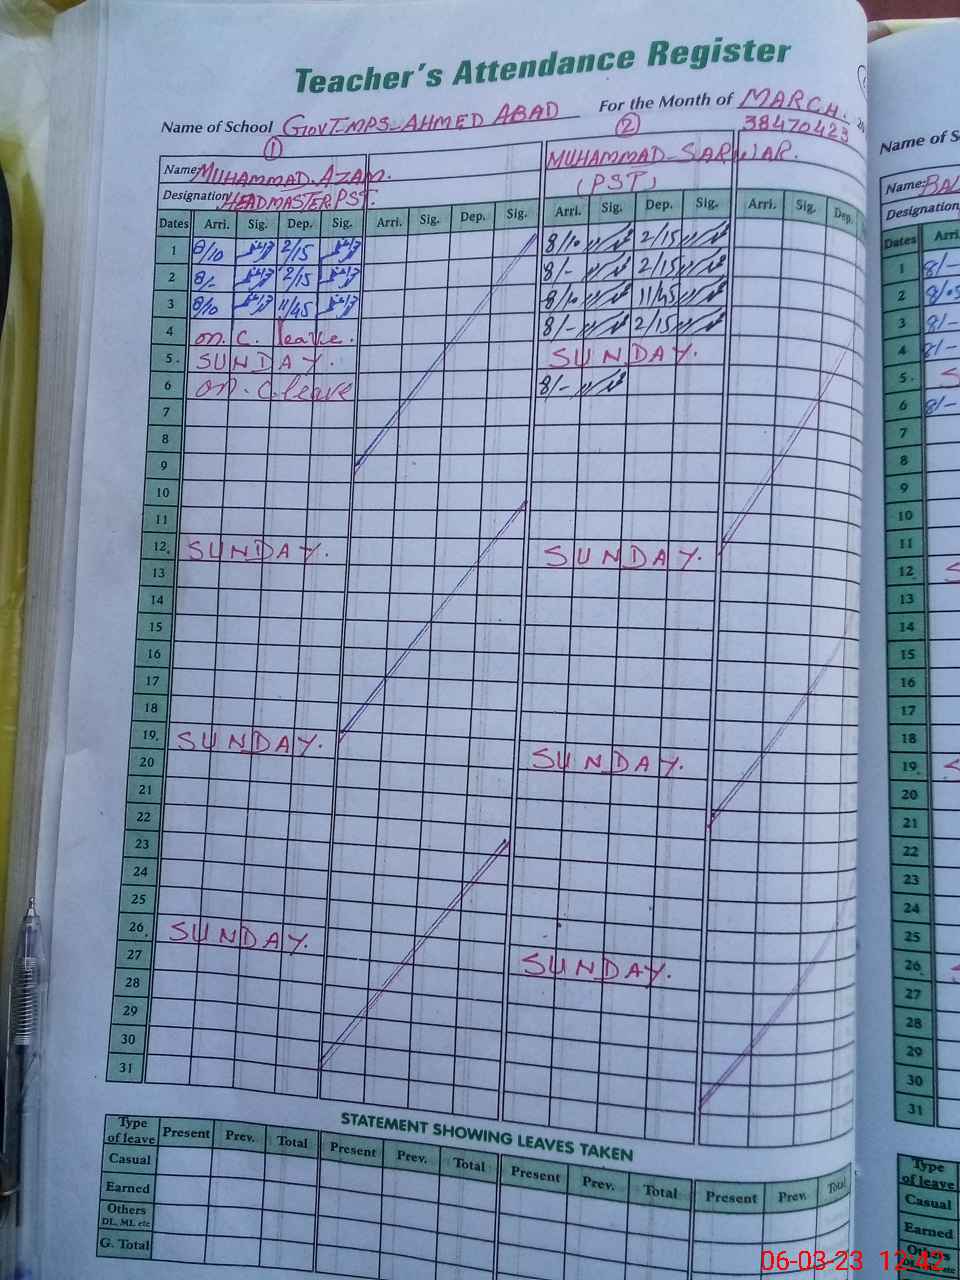 Teacher's Attendance Register
Name of School GOVT-MPS-AHMED ABAD For the Month of MARCH.
38470423
① ②
Name: MUHAMMAD. AZAM. MUHAMMAD-SARWAR.
Designation HEADMASTER PST. (PST)
Dates Arri. Sig. Dep. Sig. Arri. Sig. Dep. Sig. Arri. Sig. Dep. Sig. Arri. Sig. Dep.
1 8/10 2/15 8/10 2/15
2 8/- 2/15 8/- 2/15
3 8/10 11/45 8/10 11/45
4 on. C. leave. 8/- 2/15
5. SUNDAY. SUNDAY.
6 on. C leave 8/-
7
8
9
10
11
12. SUNDAY. SUNDAY.
13
14
15
16
17
18
19. SUNDAY. SUNDAY.
20
21
22
23
24
25
26. SUNDAY. SUNDAY.
27
28
29
30
31
STATEMENT SHOWING LEAVES TAKEN
Type of leave Present Prev. Total Present Prev. Total Present Prev. Total Present Prev. Total
Casual
Earned
Others
DL, ML etc
G. Total
Name of S
Name:
Designation
Dates Arri
1 8/-
2 8/05
3 8/-
4 8/-
5. S
6 8/-
7
8
9
10
11
12. S
13
14
15
16
17
18
19. S
20
21
22
23
24
25
26. S
27
28
29
30
31
Type
of leave
Casual
Earned
Others
06-03-23 12:42